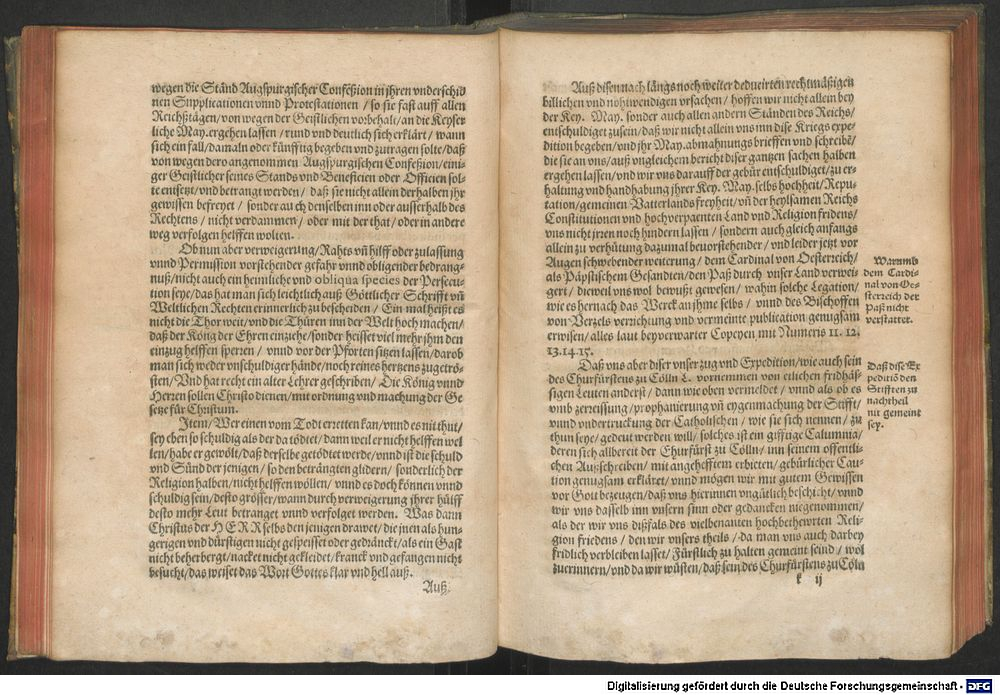 wegen die Ständ Augspurgischer Confeßion in jhren vnderschid
nen Supplicationen vnnd Protestationen / so sie fast auff allen
Reichßtägen / von wegen der Geistlichen vorbehalt / an die Keyser
liche May. ergehen lassen / rund vnd deutlich sich erklärt / wann
sich ein fall / damaln oder künfftig begeben vnd zutragen solte / daß
von wegen dero angenommen Augspurgischen Confeßion / eini-
ger Geistlicher seines Stands vnd Beneficien oder Officien sol-
te entsetzt / vnd betrangt werden / daß sie nicht allein derhalben jhr
gewissen befreyet / sonder auch denselben inn oder ausserhalb des
Rechtens / nicht verdammen / oder mit der that / oder in andere
weg verfolgen helffen wolten.
Ob nun aber verweigerung / Rahts vñ hilff oder zulassung
vnnd Permission vorstehender gefahr vnnd obligender bedrang-
nuß / nicht auch ein heimliche vnd obliqua species der Persecu-
tion seye / das hat man sich leichtlich auß Göttlicher Schrifft vñ
Weltlichen Rechten erinnerlich zu bescheiden / Ein mal heißt es
nicht die Thor weit / vnd die Thüren inn der Welt hoch machen /
daß der König der Ehren einziehe / sonder heisset viel mehr jhm den
einzug helffen sperren / vnnd vor der Pforten sitzen lassen / darob
man sich weder vnschuldiger hände / noch reines hertzens zugetrö-
sten / Vnd hat recht ein alter Lehrer geschriben / Die König vnnd
Herren sollen Christo dienen / mit ordnung vnd machung der Ge
setze für Christum.
Item / Wer einen vom Todt erretten kan / vnnd es nit thut /
sey eben so schuldig als der da tödtet / dann weil er nicht helffen wel
len / habe er gewölt / daß derselbe getödtet werde / vnnd ist die schuld
vnd Sünd der jenigen / so den beträngten glidern / sonderlich der
Religion halben / nicht helffen wöllen / vnnd es doch können vnnd
schuldig sein / desto grösser / wann durch verweigerung jhrer hülff
desto mehr Leut betranget vnnd verfolget werden. Was dann
Christus der HERR selbs den jenigen drawet / die jnen als hun-
gerigen vnd dürstigen nicht gespeisset oder gedränckt / als ein Gast
nicht beherbergt / nacket nicht gekleidet / kranck vnd gefangen nicht
besucht / das weiset das Wort Gottes klar vnd hell auß.
Auß
Auß disen nach längs noch weiter deducirten rechtmäßigen
billichen vnd nohtwendigen vrsachen / hoffen wir nicht allein bey
der Key. May. sonder auch allen andern Ständen des Reichs /
entschuldiget zu sein / daß wir nicht allein vns inn dise Kriegs expe-
dition begeben / vnd jhr May. abmahnungs brieffen vnd schreibē /
die sie an vns / auß vngleichem bericht diser gantzen sachen halben
ergehen lassen / vnd wir vns darauff der gebür entschuldiget / zu er-
haltung vnd handhabung jhrer Key. May. selbs hochheit / Repu-
tation / gemeinen Vatterlands freyheit / vñ der heylsamen Reichs
Constitutionen vnd hochverpaenten Land vnd Religion fridens /
vns nicht jrren noch hindern lassen / sondern auch gleich anfangs
allein zu verhütung dazumal beuorstehender / vnd leider jetzt vor
Augen schwebender weiterung / dem Cardinal von Oesterreich /
als Päpstischem Gesandten / den Paß durch vnser Land verwei
gert / dieweil vns wol bewußt gewesen / wahin solche Legation /
wie es hernach das Werck an jhme selbs / vnnd des Bischoffen
von Verzels verrichung vnd vermeinte publication genugsam
erwisen / alles laut beyverwarter Copeyen mit Numeris 11. 12.
13. 14. 15.
Warumb
dem Cardi-
nal von Oe-
sterreich der
Paß nicht
verstattet.
Daß vns aber diser vnser zug vnd Expedition / wie auch sein
des Churfürstens zu Cölln L. vornemmen von etlichen fridhäs-
sigen Leuten anderst / dann wie oben vermeldet / vnnd als ob es
vmb zerreissung / prophanierung vñ eygenmachung der Stifft /
vnnd vndertruckung der Catholischen / wie sie sich nennen / zu
thun seye / gedeut werden will / solches ist ein gifftige Calumnia /
deren sich allbereit der Churfürst zu Cölln / inn seinem offentli-
chen Außschreiben / mit angehefftem erbieten / gebürlicher Cau-
tion genugsam erkläret / vnnd mögen wir mit gutem Gewissen
vor Gott bezeugen / daß vns hierinnen vngütlich beschicht / vnnd
wir vns dasselb inn vnsern sinn oder gedancken nie genommen /
als der wir vns dißfals des vielbenanten hochbethewrten Reli-
gion friedens / den wir vnsers theils / da man vns auch darbey
fridlich verbleiben lasset / Fürstlich zu halten gemeint seind / wol
zuerinnern / vnd da wir wüsten / daß sein des Churfürstens zu Cöln
Daß dise Ex
peditiō den
Stifften zu
nachtheil
nit gemeint
sey.
k ij
Digitalisierung gefördert durch die Deutsche Forschungsgemeinschaft - DFG